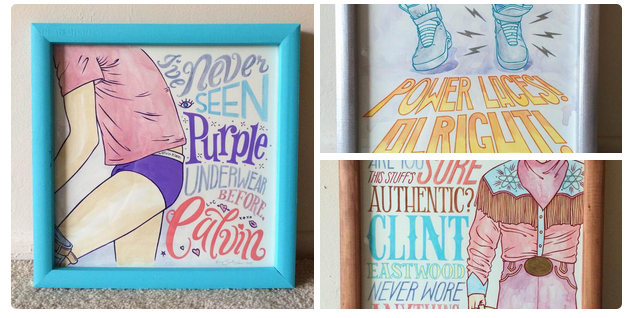 I've Never
SEEN
Purple
UNDERWEAR
BEFORE,
Calvin
POWER LACES!
ALRIGHT!
ARE YOU SURE
THIS STUFF'S
AUTHENTIC?
CLINT
EASTWOOD
NEVER WORE
ANYTHING